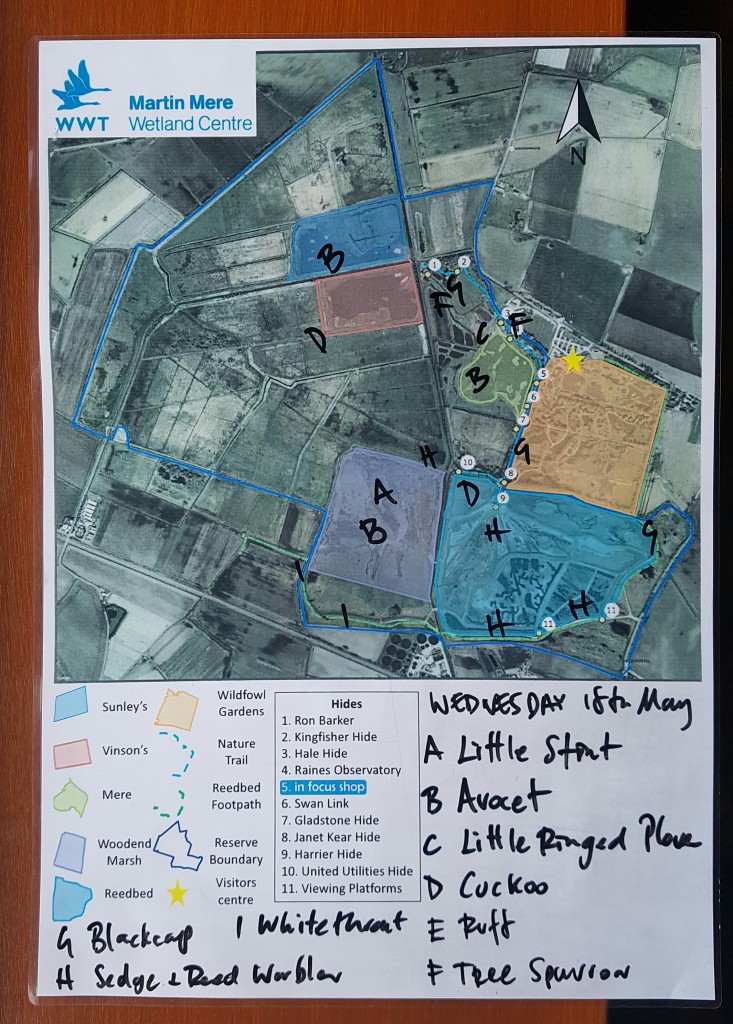 WWT
Martin Mere
Wetland Centre
N
B
1
2
G
F
D
C
3
F
B
5
6
7
G
8
H
10
D
9
A
B
H
G
I
I
H
11
H
11
Sunley's
Wildfowl Gardens
Vinson's
Nature Trail
Mere
Reedbed Footpath
Woodend Marsh
Reserve Boundary
Reedbed
Visitors centre
Hides
1. Ron Barker
2. Kingfisher Hide
3. Hale Hide
4. Raines Observatory
5. in focus shop
6. Swan Link
7. Gladstone Hide
8. Janet Kear Hide
9. Harrier Hide
10. United Utilities Hide
11. Viewing Platforms
WEDNESDAY 18th May
A Little Stint
B Avocet
C Little Ringed Plover
D Cuckoo
E Ruff
F Tree Sparrow
G Blackcap
I Whitethroat
H Sedge + Reed Warbler